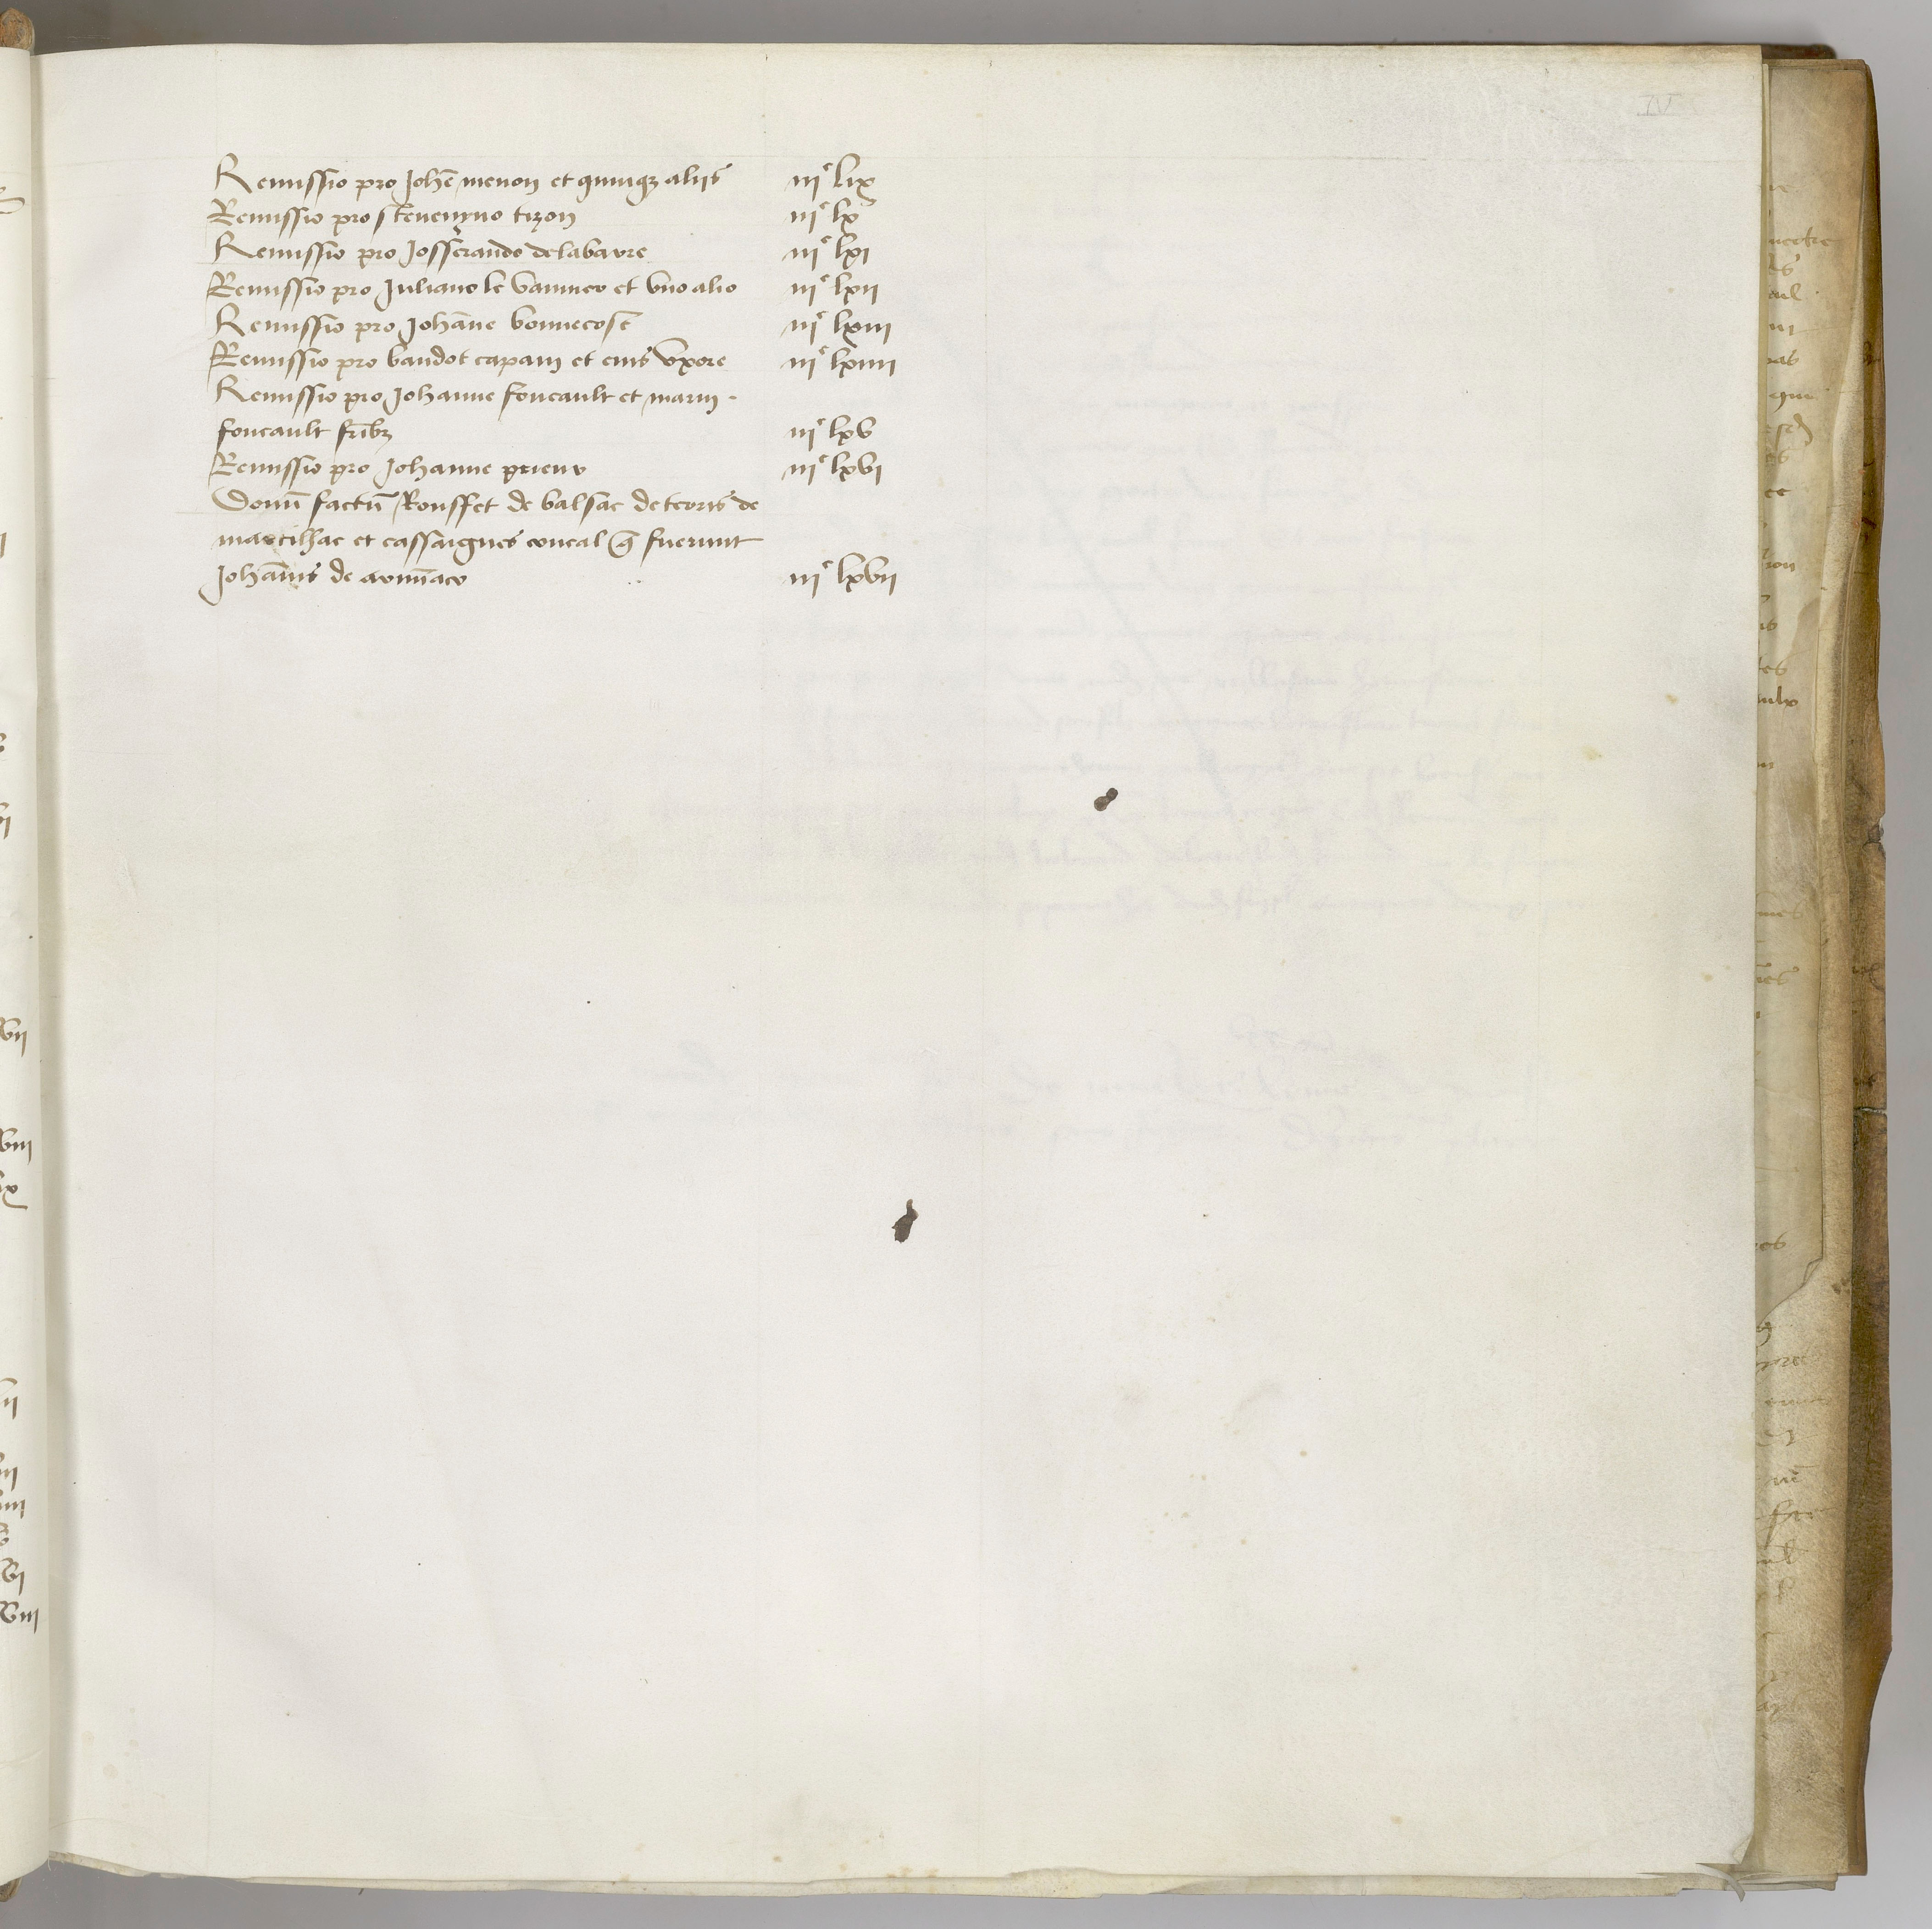 IV
Remissio pro Johe menon et quinqz aliis iii^c lix
Remissio pro stevenyno tizon iii^c lx
Remissio pro Josserando delabarre iii^c lxi
Remissio pro Juliano le vanner et vno alio iii^c lxii
Remissio pro Johane bonnecost iii^c lxiii
Remissio pro baudot capain et eius vxore iii^c lxiiii
Remissio pro Johanne foucault et marin
foucault fribz iii^c lxv
Remissio pro Johanne prieur iii^c lxvi
Donu factu Rouffet de balsac de terris de
marcilhac et cassaignes que fuerunt
Johanis de armaco iii^c lxvii